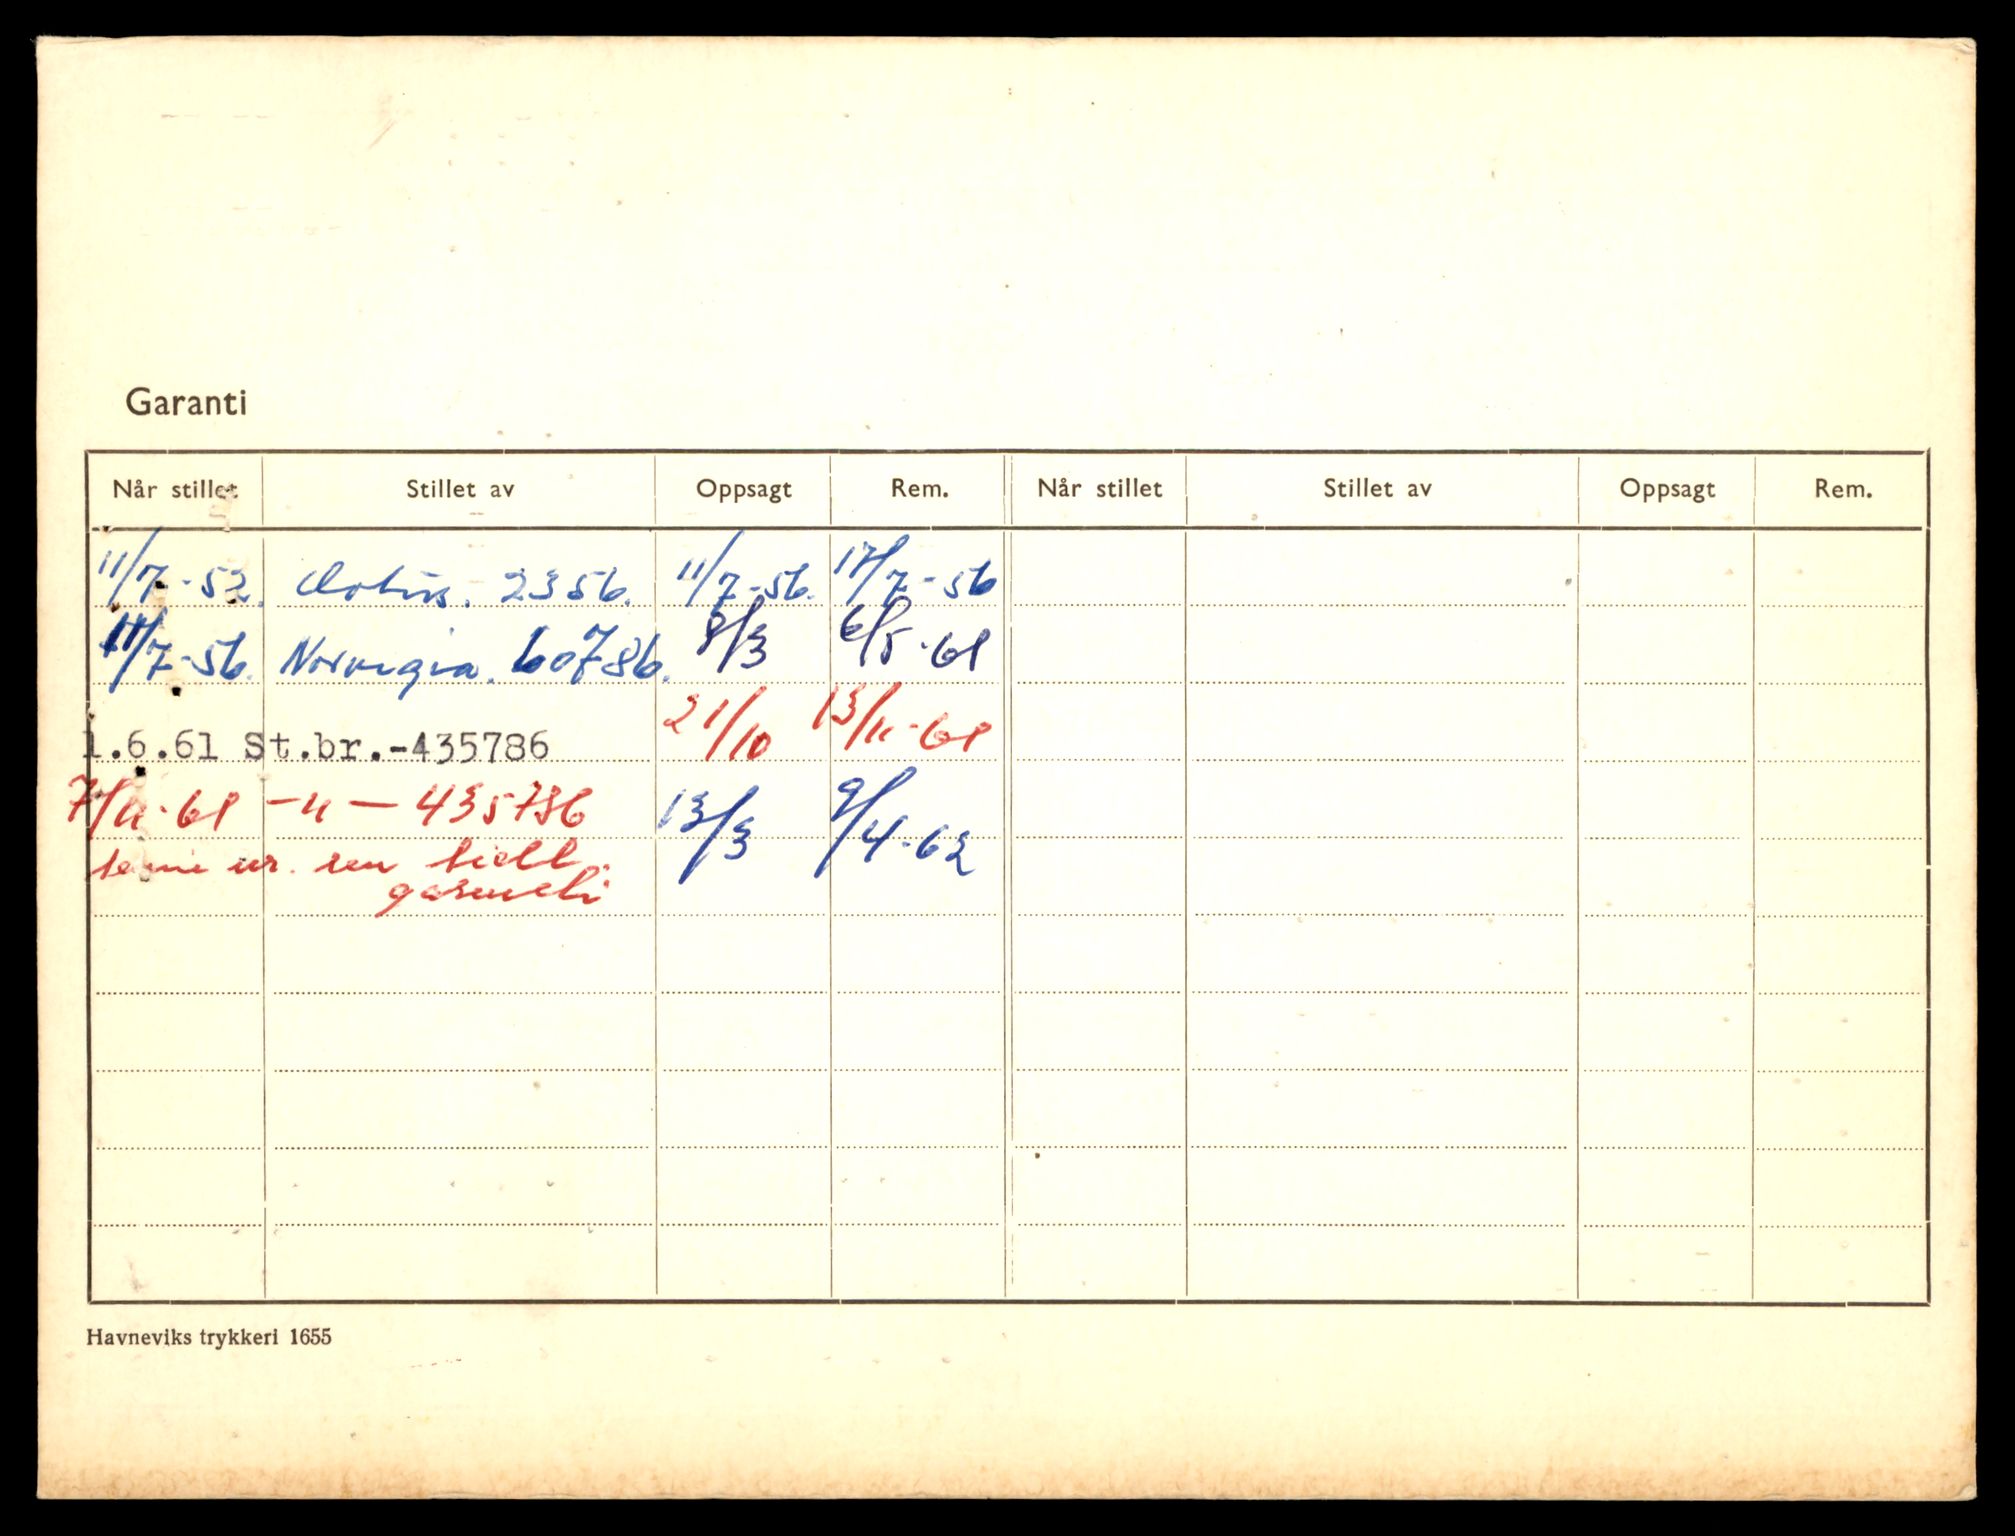 Garanti
Når stillet Stillet av Oppsagt Rem. Når stillet Stillet av Oppsagt Rem.
11/7-52. 2356. 11/7-56. 17/7-56
11/7-56. Norvegia. 60786. 8/3 6/5-61
1.6.61 St.br.-435786 21/10 13/11-61
7/11-61 -"- 435786 13/3 9/4-62
garanti
Havneviks trykkeri 1655